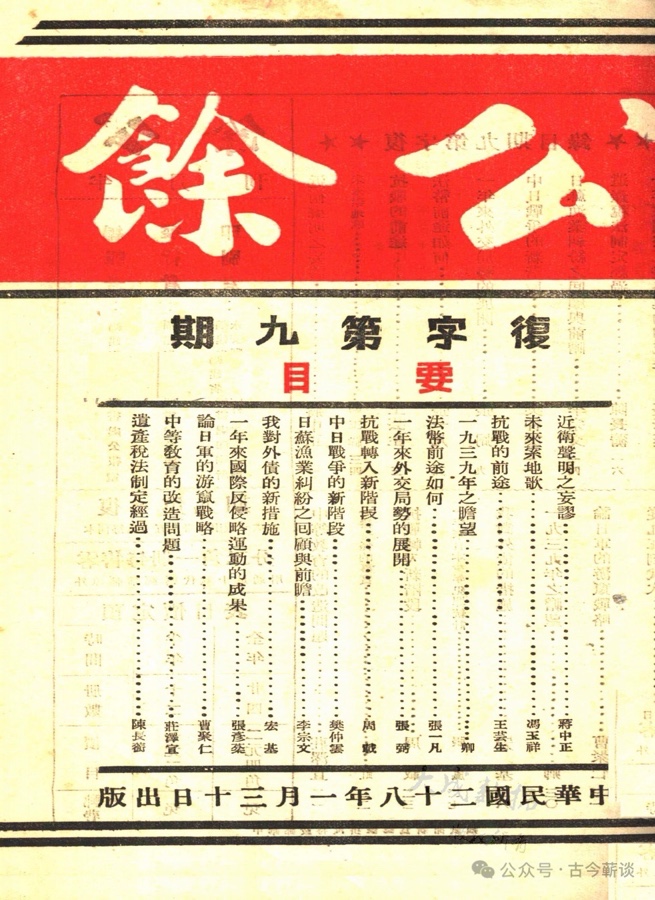 公餘
復字第九期
要目
近衛聲明之妄謬………蔣中正
未來案地歌………馮玉祥
抗戰的前途………王芸生
一九三九年之瞻望………卿
法幣前途如何………張一凡
一年來外交局勢的展開………張弼
抗戰轉入新階段………周戟
中日戰爭的新階段………樊仲雲
日蘇漁業糾紛之回顧與前瞻………李宗文
我對外債的新措施………宏基
一年來國際反侵略運動的成果………張彥棻
論日軍的游竄戰略………曹聚仁
中等敎育的改造問題………莊澤宣
遺產稅法制定經過………陳長蘅
中華民國二十八年一月三十日出版
公众号·古今薪谈